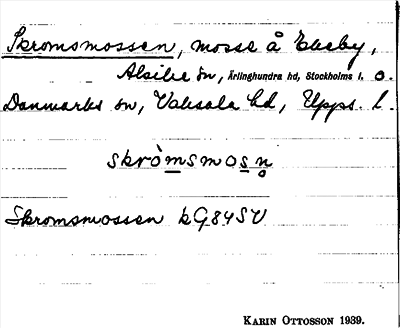 Skromsmossen, mosse å Ekeby,
Alsike sn, Ärlinghundra hd, Stockholms l. o.
Danmarks sn, Vaksala hd, Upps. l.
skròmsmosn̥
Skromsmossen kG84SV
KARIN OTTOSSON 1939.